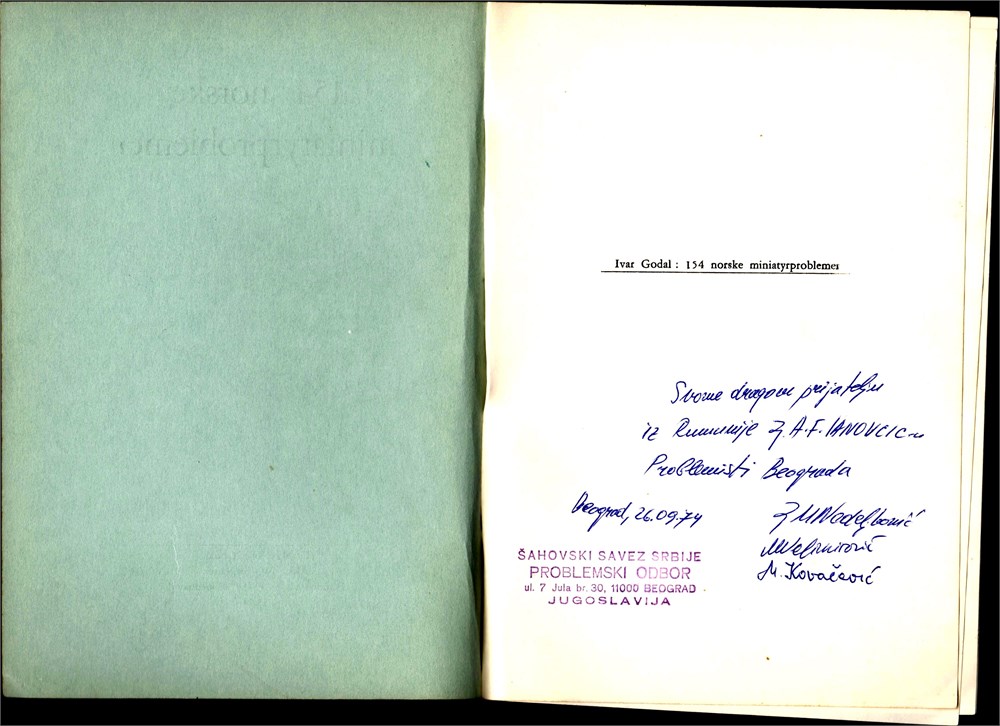 154 norske
miniatyrproblemer
Ivar Godal : 154 norske miniatyrproblemer
Svome dragom prijatelju
iz Rumunije A.F. IANOVCIC-u
Problemisti Beograda
Beograd, 26.09.74
M. Velimirović
M. Kovačević
ŠAHOVSKI SAVEZ SRBIJE
PROBLEMSKI ODBOR
ul. 7 Jula br. 30, 11000 BEOGRAD
JUGOSLAVIJA